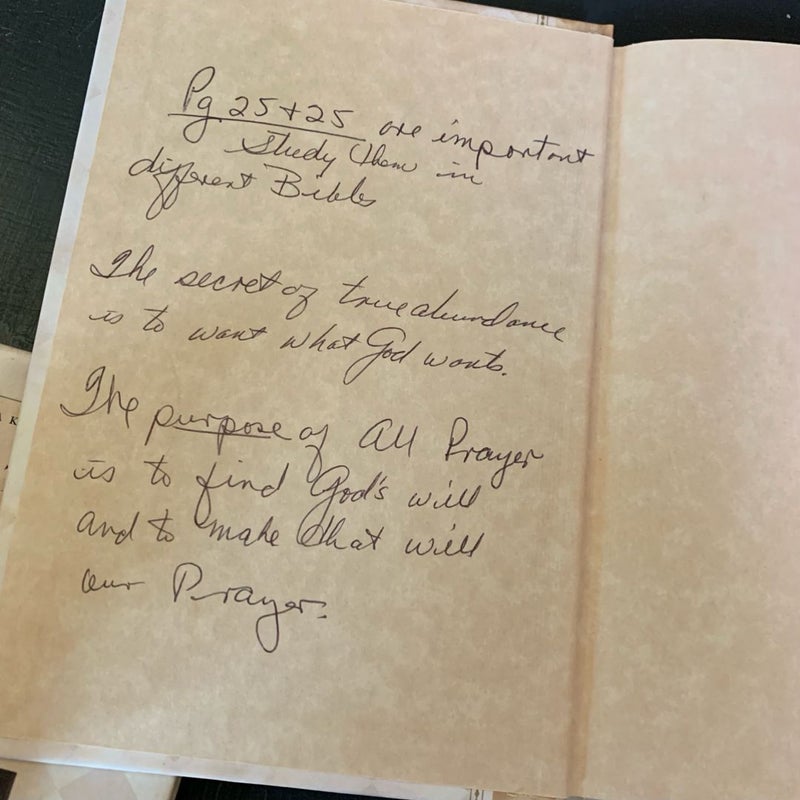 Pg 25+25 are important
Study them in
different Bibles
The secret of true abundance
is to want what God wants.
The purpose of All Prayer
is to find God's will
and to make that will
our Prayer.
K